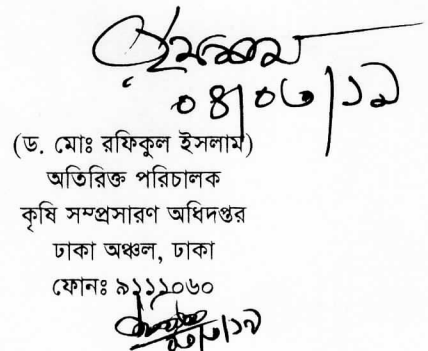 ০৪/০৩/১৯
(ড. মোঃ রফিকুল ইসলাম)
অতিরিক্ত পরিচালক
কৃষি সম্প্রসারণ অধিদপ্তর
ঢাকা অঞ্চল, ঢাকা
ফোনঃ ৯১১১০৬০